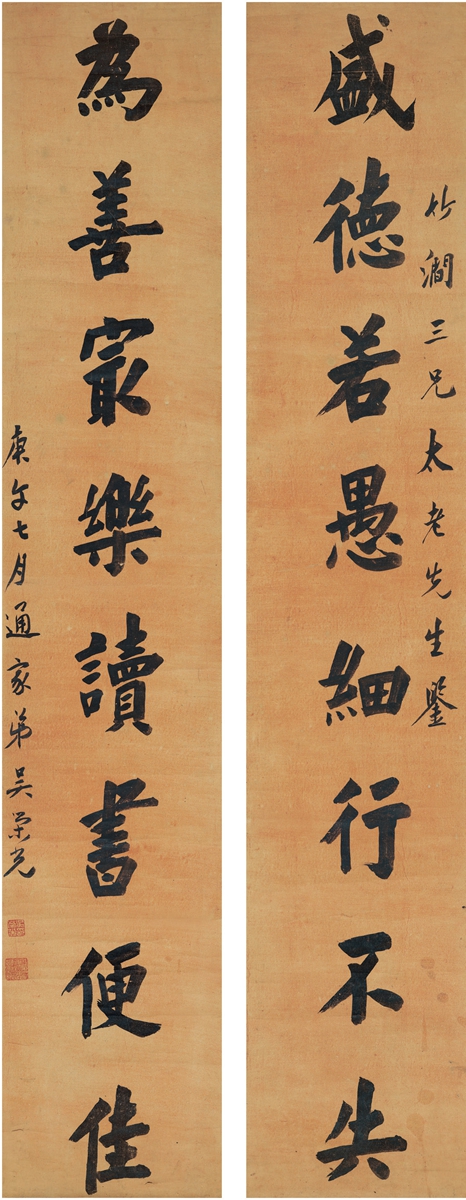 竹澗三兄太老先生鑒
盛德若愚細行不失
為善冣樂讀書便佳
庚午七月通家弟吴榮光